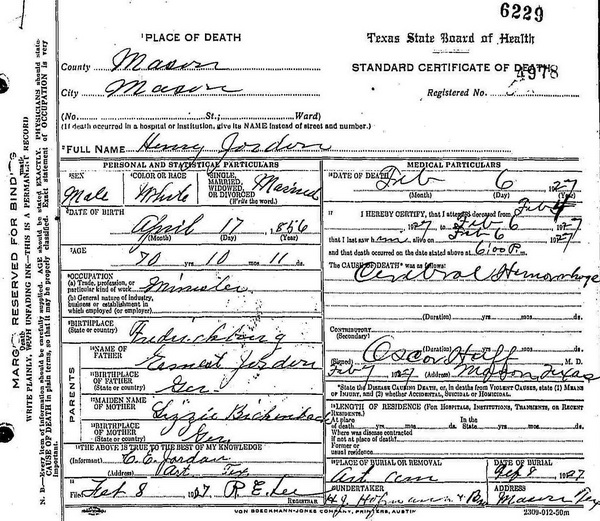 6229
PLACE OF DEATH
Texas State Board of Health
County Mason
STANDARD CERTIFICATE OF DEATH
4978
City Mason
Registered No.
(No. St.; Ward)
(If death occurred in a hospital or institution, give its NAME instead of street and number.)
FULL NAME Henry Jordon
PERSONAL AND STATISTICAL PARTICULARS
SEX
Male
COLOR OR RACE
White
SINGLE, MARRIED, WIDOWED, OR DIVORCED (Write the word.)
Married
DATE OF BIRTH
April 17 1856
(Month) (Day) (Year)
AGE
70 yrs. 10 mos. 11 ds.
OCCUPATION
(a) Trade, profession, or particular kind of work Minister
(b) General nature of industry, business or establishment in which employed (or employer)
BIRTHPLACE
(State or country)
PARENTS
NAME OF FATHER Earnest Jordon
BIRTHPLACE OF FATHER
(State or country) Ger
MAIDEN NAME OF MOTHER Lizzie
BIRTHPLACE OF MOTHER
(State or country) Ger
THE ABOVE IS TRUE TO THE BEST OF MY KNOWLEDGE
(Informant) Jordan
(Address) Art Tex
Filed Feb 8 1927 R E Lee
REGISTRAR
MEDICAL PARTICULARS
DATE OF DEATH
Feb 6 1927
(Month) (Day) (Year)
I HEREBY CERTIFY, That I attended deceased from Feb
1927 to Feb 6 1927
that I last saw him alive on Feb 6 1927
and that death occurred on the date stated above at 6:00 P. m.
The CAUSE OF DEATH was as follows:
Cerebral Hemorrhage
(Duration) yrs. mos. ds.
CONTRIBUTORY
(Secondary)
(Duration) yrs. mos. ds.
(Signed) Oscar M. D.
Feb 7 1927 (Address) Mason Texas
State the DISEASE CAUSING DEATH, or, in deaths from VIOLENT CAUSES, state (1) MEANS OF INJURY, and (2) whether ACCIDENTAL, SUICIDAL or HOMICIDAL.
LENGTH OF RESIDENCE (FOR HOSPITALS, INSTITUTIONS, TRANSIENTS, OR RECENT RESIDENTS.)
At place of death yrs. mos. ds. In the State yrs. mos. ds.
Where was disease contracted
if not at place of death?
Former or
usual residence
PLACE OF BURIAL OR REMOVAL
Art cem
DATE OF BURIAL
Feb 8 1927
UNDERTAKER
(Address)
Mason Tex
VON BOECKMANN-JONES COMPANY, PRINTERS, AUSTIN
2309-012-50m
MARGIN RESERVED FOR BINDING
WRITE PLAINLY, WITH UNFADING INK—THIS IS A PERMANENT RECORD
N. B.—Every item of information should be carefully supplied. AGE should be stated EXACTLY. PHYSICIANS should state
CAUSE OF DEATH in plain terms, so that it may be properly classified. Exact statement of OCCUPATION is very
important.